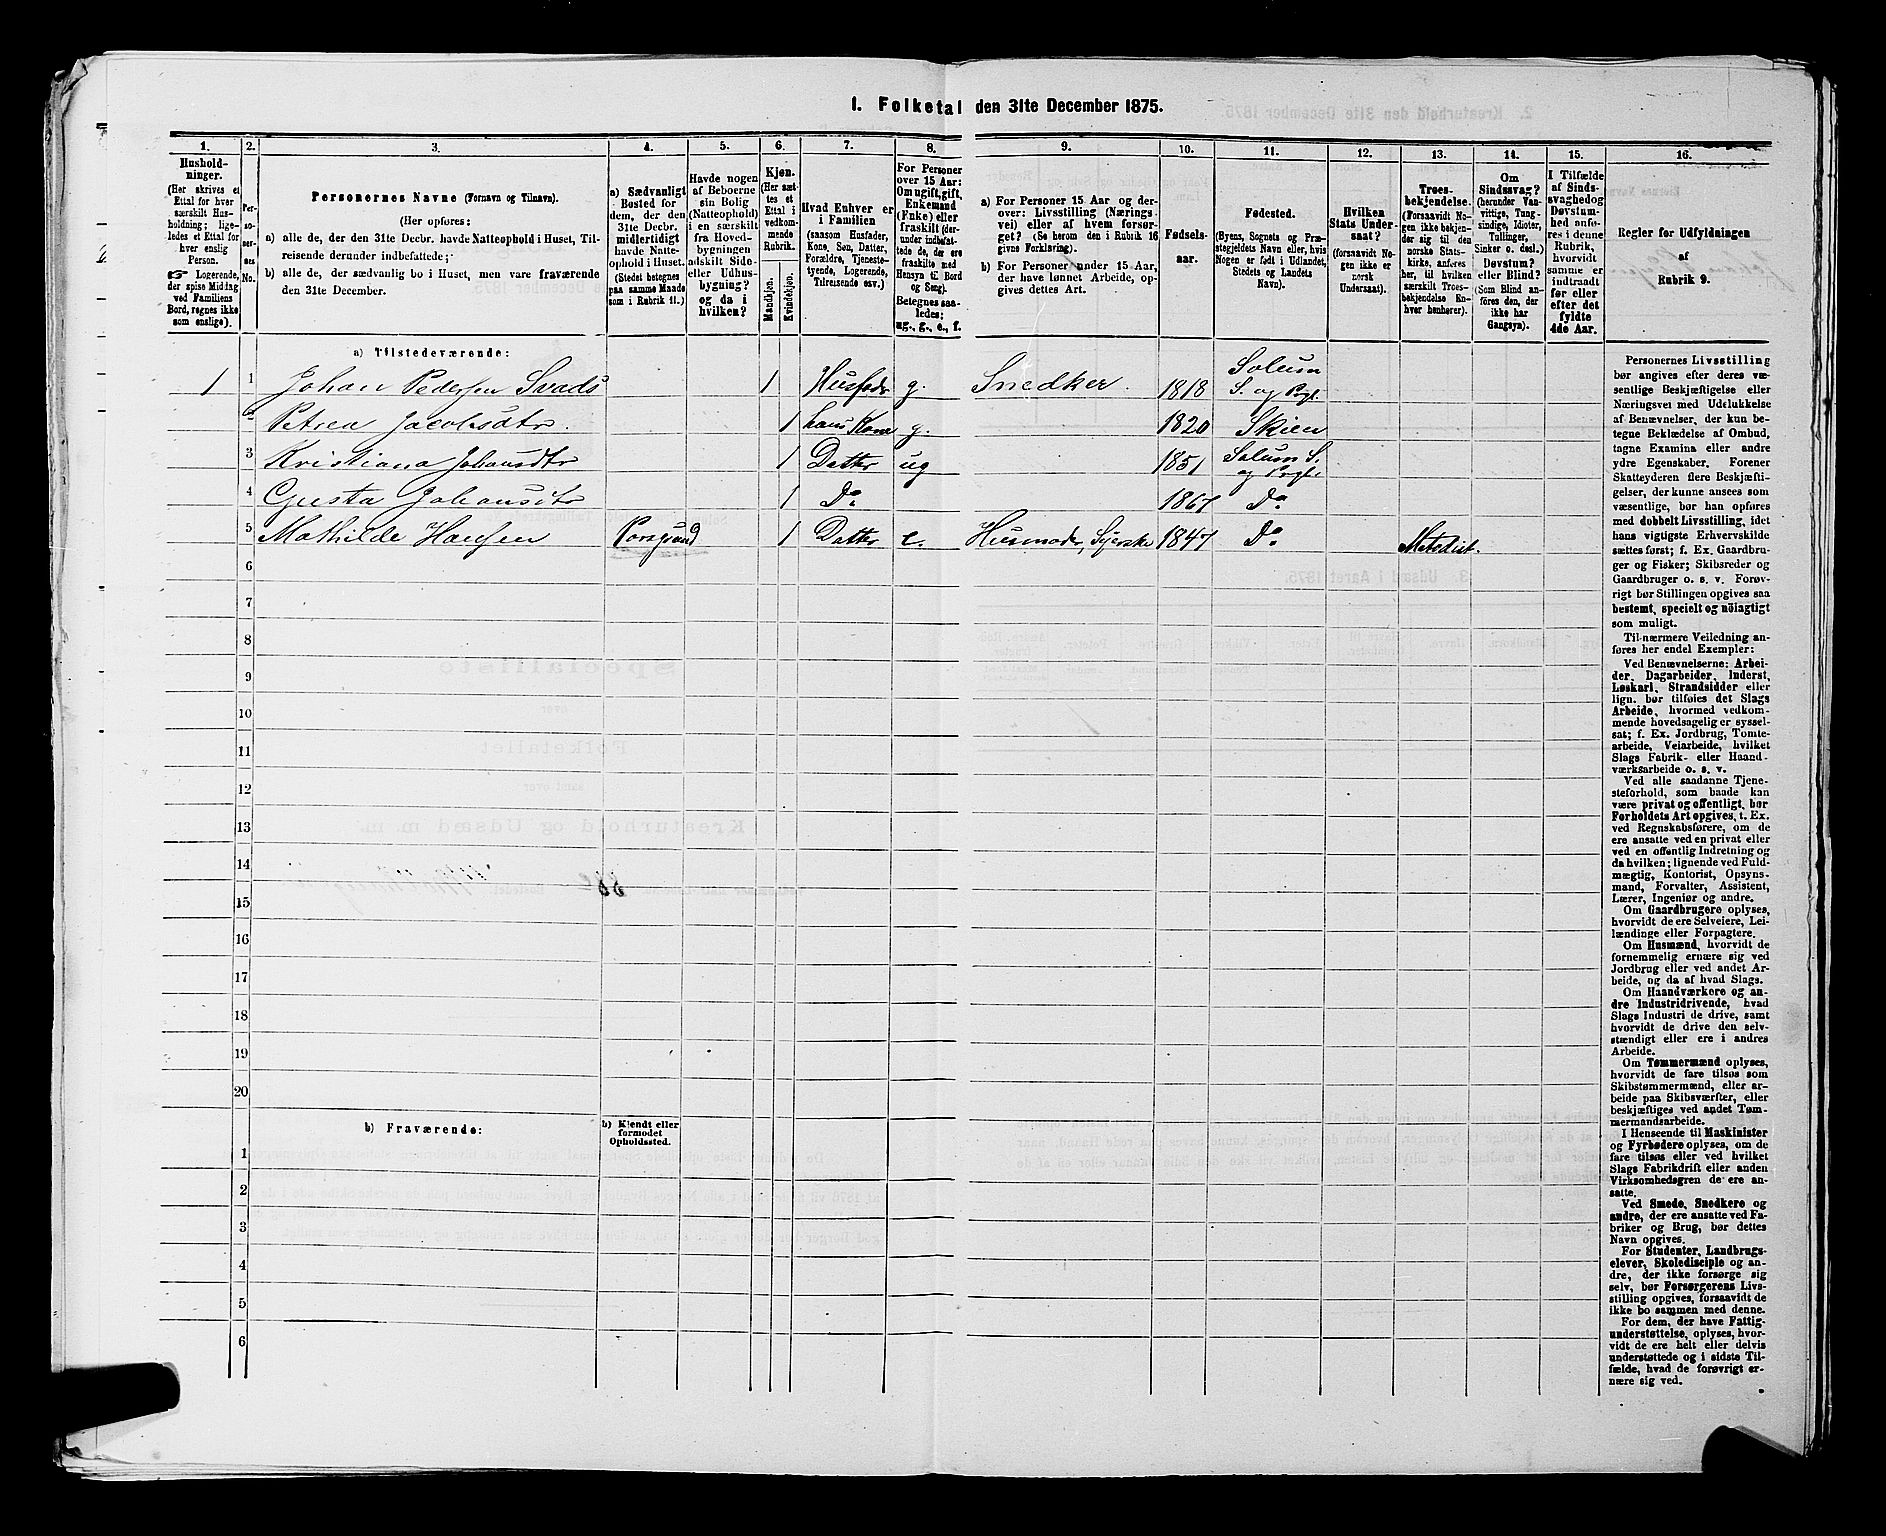 1. Folketal den 31te December 1875.
1.
Hushold-
ninger.
(Her skrives et
Ettal for hver
særskilt Hus-
holdning; lige-
ledes et Ettal for
hver enslig
Person.
☞ Logerende,
der spise Middag
ved Familiens
Bord, regnes ikke
som enslige).
2.
Per-
so-
ner-
nes
No.
3.
Personernes Navne (Fornavn og Tilnavn).
(Her opføres:
a) alle de, der den 31te Decbr. havde Natteophold i Huset, Til-
reisende derunder indbefattede;
b) alle de, der sædvanlig bo i Huset, men vare fraværende
den 31te December.
4.
a) Sædvanligt
Bosted for
dem, der den
31te Decbr.
midlertidigt
havde Natte-
ophold i Huset.
(Stedet betegnes
paa samme Maade
som i Rubrik 11.)
5.
Havde nogen
af Beboerne
sin Bolig
(Natteophold)
i en særskilt
fra Hoved-
bygningen
adskilt Side-
eller Udhus-
bygning?
og da i
hvilken?
6.
Kjøn.
(Her sæt-
tes et
Ettal i
vedkom-
mende
Rubrik.
Mandkjøn.
Kvindekjøn.
7.
Hvad Enhver er
i Familien
(saasom Husfader,
Kone, Søn, Datter,
Forældre, Tjeneste-
tyende, Logerende,
Tilreisende osv.)
8.
For Personer
over 15 Aar:
Om ugift, gift,
Enkemand
(Enke) eller
fraskilt (der-
under indbefat-
tede de, der ere
fraskilte med
Hensyn til Bord
og Seng).
Betegnes saa-
ledes:
ug., g., e., f.
9.
a) For Personer 15 Aar og der-
over: Livsstilling (Nærings-
vei) eller af hvem forsør-
get? (Se herom den i Rubrik 16
givne Forklaring).
b) For Personer under 15 Aar,
der have lønnet Arbeide, op-
gives dettes Art.
10.
Fødsels-
aar.
11.
Fødested.
(Byens, Sognets og Præ-
stegjeldets Navn eller, hvis
Nogen er født i Udlandet,
Stedets og Landets
Navn).
12.
Hvilken
Stats Under-
saat?
(forsaavidt No-
gen ikke er
norsk
Undersaat).
13.
Troes-
bekjendelse.
(Forsaavidt No-
gen ikke bekjen-
der sig til den
norske Stats-
kirke, anføres
her, til hvilken
særskilt Troes-
bekjendelse En-
hver henhører).
14.
Om
Sindssvag?
(herunder Van-
vittige, Tung-
sindige, Idioter,
Tullinger,
Sinker o. desl.)
Døvstum?
eller Blind?
(Som Blind an-
føres den, der
ikke har
Gangsyn).
15.
I Tilfælde
af Sinds-
svaghed og
Døvstum-
hed anfø-
res i denne
Rubrik,
hvorvidt
samme er
indtraadt
før eller
efter det
fyldte
4de Aar.
16.
Regler for Udfyldningen
af
Rubrik 9.
a) Tilstedeværende:
1 1 Johan Pedersen Svads 1 Husfader g. Snedker. 1818 Solum S. og Pgl.
2 Petrea Jacobsdtr. 1 hans Kone g. 1820 Skien
3 Kristiana Johansdtr 1 Datter ug 1851 Solum S. og Prgl.
4 Gusta Johansdtr 1 Do 1867 Do
5 Mathilde Hansen Porsgrund 1 Datter e. Husmoder, Syerske 1847 Do Metodist.
6
7
8
9
10
11
12
13
14
15
16
17
18
19
20
b) Fraværende:
b) Kjendt eller
formodet
Opholdssted.
1
2
3
4
5
6
Personernes Livsstilling
bør angives efter deres væ-
sentlige Beskjæftigelse eller
Næringsvei med Udelukkelse
af Benævnelser, der kun be-
tegne Beklædelse af Ombud,
tagne Examina eller andre
ydre Egenskaber. Forener
Skatteyderen flere Beskjæfti-
gelser, der kunne ansees som
væsentlige, bør han opføres
med dobbelt Livsstilling, idet
hans vigtigste Erhvervskilde
sættes først; f. Ex. Gaardbru-
ger og Fisker; Skibsreder og
Gaardbruger o. s. v. Forøv-
rigt bør Stillingen opgives saa
bestemt, specielt og nöiagtigt
som muligt.
Til nærmere Veiledning an-
føres her endel Exempler:
Ved Benævnelserne: Arbei-
der, Dagarbeider, Inderst,
Løskarl, Strandsidder eller
lign. bør tilføies det Slags
Arbeide, hvormed vedkom-
mende hovedsagelig er syssel-
sat; f. Ex. Jordbrug, Tomte-
arbeide, Veiarbeide, hvilket
Slags Fabrik- eller Haand-
værksarbeide o. s. v.
Ved alle saadanne Tjene-
steforhold, som baade kan
være privat og offentligt, bør
Forholdets Art opgives, t. Ex.
ved Regnskabsførere, om de
ere ansatte ved en privat eller
ved en offentlig Indretning og
da hvilken; lignende ved Fuld-
mægtig, Kontorist, Opsyns-
mand, Forvalter, Assistent,
Lærer, Ingeniør og andre.
Om Gaardbrugere oplyses,
hvorvidt de ere Selveiere, Lei-
lændinge eller Forpagtere.
Om Husmænd, hvorvidt de
fornemmelig ernære sig ved
Jordbrug eller ved andet Ar-
beide, og da af hvad Slags.
Om Haandværkere og an-
dre Industridrivende, hvad
Slags Industri de drive, samt
hvorvidt de drive den selv-
stændigt eller ere i andres
Arbeide.
Om Tømmermænd oplyses,
hvorvidt de fare tilsøs som
Skibstømmermænd, eller ar-
beide paa Skibsværfter, eller
beskjæftiges ved andet Tøm-
mermandsarbeide.
I Henseende til Maskinister
og Fyrbødere oplyses, om de
fare tilsøs eller ved hvilket
Slags Fabrikdrift eller anden
Virksomhedsgren de ere an-
satte.
Ved Smede, Snedkere og
andre, der ere ansatte ved Fa-
briker og Brug, bør dettes
Navn opgives.
For Studenter, Landbrugs-
elever, Skoledisciple og an-
dre, der ikke forsørge sig
selv, bør Forsørgerens Livs-
stilling opgives, forsaavidt de
ikke bo sammen med denne.
For dem, der have Fattig-
understøttelse, oplyses, hvor-
vidt de ere helt eller delvis
understøttede og i sidste Til-
fælde, hvad de forøvrigt er-
nære sig ved.